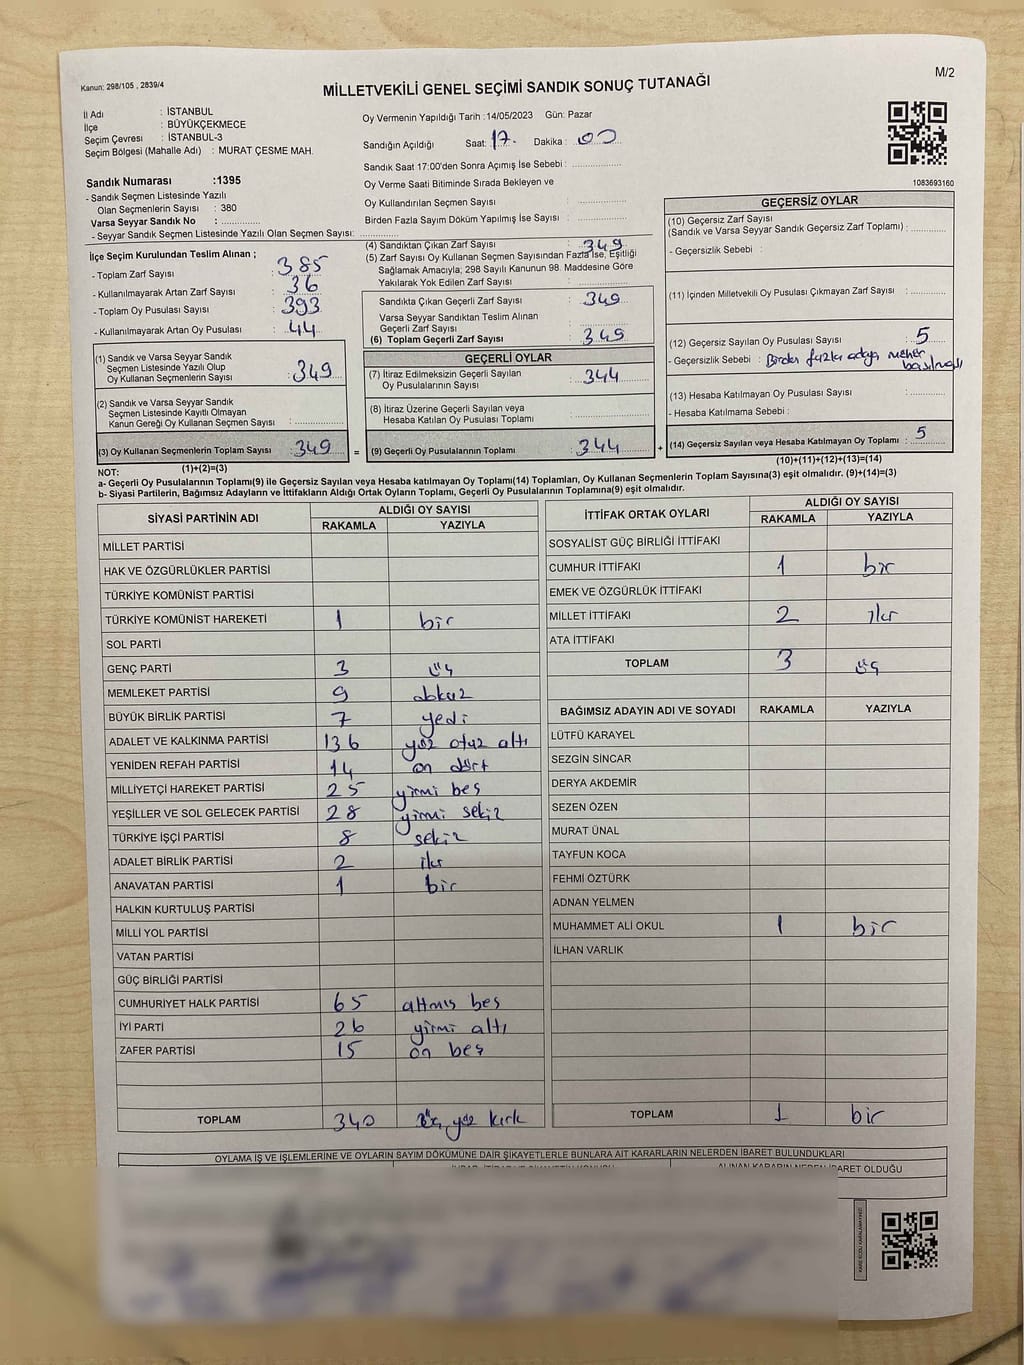 Kanun: 298/105 , 2839/4
MİLLETVEKİLİ GENEL SEÇİMİ SANDIK SONUÇ TUTANAĞI
M/2
İl Adı : İSTANBUL
İlçe : BÜYÜKÇEKMECE
Seçim Çevresi : İSTANBUL-3
Seçim Bölgesi (Mahalle Adı) : MURAT ÇESME MAH.
Sandık Numarası :1395
- Sandık Seçmen Listesinde Yazılı
Olan Seçmenlerin Sayısı : 380
Varsa Seyyar Sandık No :
- Seyyar Sandık Seçmen Listesinde Yazılı Olan Seçmen Sayısı:
Oy Vermenin Yapıldığı Tarih :14/05/2023 Gün: Pazar
Sandığın Açıldığı Saat: 17. Dakika: 00
Sandık Saat 17:00'den Sonra Açımış İse Sebebi :
Oy Verme Saati Bitiminde Sırada Bekleyen ve
Oy Kullandırılan Seçmen Sayısı :
Birden Fazla Sayım Döküm Yapılmış İse Sayısı :
1083693160
İlçe Seçim Kurulundan Teslim Alınan ;
- Toplam Zarf Sayısı : 385
- Kullanılmayarak Artan Zarf Sayısı : 36
- Toplam Oy Pusulası Sayısı : 393
- Kullanılmayarak Artan Oy Pusulası : 44
(1) Sandık ve Varsa Seyyar Sandık
Seçmen Listesinde Yazılı Olup
Oy Kullanan Seçmenlerin Sayısı : 349
(2) Sandık ve Varsa Seyyar Sandık
Seçmen Listesinde Kayıtlı Olmayan
Kanun Gereği Oy Kullanan Seçmen Sayısı :
(3) Oy Kullanan Seçmenlerin Toplam Sayısı : 349
(1)+(2)=(3)
(4) Sandıktan Çıkan Zarf Sayısı : 349
(5) Zarf Sayısı Oy Kullanan Seçmen Sayısından Fazla İse, Eşitliği
Sağlamak Amacıyla; 298 Sayılı Kanunun 98. Maddesine Göre
Yakılarak Yok Edilen Zarf Sayısı :
Sandıkta Çıkan Geçerli Zarf Sayısı : 349
Varsa Seyyar Sandıktan Teslim Alınan
Geçerli Zarf Sayısı :
(6) Toplam Geçerli Zarf Sayısı : 349
GEÇERLİ OYLAR
(7) İtiraz Edilmeksizin Geçerli Sayılan
Oy Pusulalarının Sayısı : 344
(8) İtiraz Üzerine Geçerli Sayılan veya
Hesaba Katılan Oy Pusulası Toplamı :
= (9) Geçerli Oy Pusulalarının Toplamı : 344 +
GEÇERSİZ OYLAR
(10) Geçersiz Zarf Sayısı
(Sandık ve Varsa Seyyar Sandık Geçersiz Zarf Toplamı) :
- Geçersizlik Sebebi :
(11) İçinden Milletvekili Oy Pusulası Çıkmayan Zarf Sayısı :
(12) Geçersiz Sayılan Oy Pusulası Sayısı : 5
- Geçersizlik Sebebi : Birden fazla adaya mühür
basılmış
(13) Hesaba Katılmayan Oy Pusulası Sayısı :
- Hesaba Katılmama Sebebi :
(14) Geçersiz Sayılan veya Hesaba Katılmayan Oy Toplamı : 5
(10)+(11)+(12)+(13)=(14)
NOT:
a- Geçerli Oy Pusulalarının Toplamı(9) ile Geçersiz Sayılan veya Hesaba katılmayan Oy Toplamı(14) Toplamları, Oy Kullanan Seçmenlerin Toplam Sayısına(3) eşit olmalıdır. (9)+(14)=(3)
b- Siyasi Partilerin, Bağımsız Adayların ve İttifakların Aldığı Ortak Oyların Toplamı, Geçerli Oy Pusulalarının Toplamına(9) eşit olmalıdır.
SİYASİ PARTİNİN ADI ALDIĞI OY SAYISI
RAKAMLA YAZIYLA
MİLLET PARTİSİ
HAK VE ÖZGÜRLÜKLER PARTİSİ
TÜRKİYE KOMÜNİST PARTİSİ
TÜRKİYE KOMÜNİST HAREKETİ 1 bir
SOL PARTİ
GENÇ PARTİ 3 üç
MEMLEKET PARTİSİ 9 dokuz
BÜYÜK BİRLİK PARTİSİ 7 yedi
ADALET VE KALKINMA PARTİSİ 136 yüz otuz altı
YENİDEN REFAH PARTİSİ 14 on dört
MİLLİYETÇİ HAREKET PARTİSİ 25 yirmi beş
YEŞİLLER VE SOL GELECEK PARTİSİ 28 yirmi sekiz
TÜRKİYE İŞÇİ PARTİSİ 8 sekiz
ADALET BİRLİK PARTİSİ 2 iki
ANAVATAN PARTİSİ 1 bir
HALKIN KURTULUŞ PARTİSİ
MİLLİ YOL PARTİSİ
VATAN PARTİSİ
GÜÇ BİRLİĞİ PARTİSİ
CUMHURİYET HALK PARTİSİ 65 altmış beş
İYİ PARTİ 26 yirmi altı
ZAFER PARTİSİ 15 on beş
TOPLAM 340 üç yüz kırk
İTTİFAK ORTAK OYLARI ALDIĞI OY SAYISI
RAKAMLA YAZIYLA
SOSYALİST GÜÇ BİRLİĞİ İTTİFAKI
CUMHUR İTTİFAKI 1 bir
EMEK VE ÖZGÜRLÜK İTTİFAKI
MİLLET İTTİFAKI 2 iki
ATA İTTİFAKI
TOPLAM 3 üç
BAĞIMSIZ ADAYIN ADI VE SOYADI RAKAMLA YAZIYLA
LÜTFÜ KARAYEL
SEZGİN SİNCAR
DERYA AKDEMİR
SEZEN ÖZEN
MURAT ÜNAL
TAYFUN KOCA
FEHMİ ÖZTÜRK
ADNAN YELMEN
MUHAMMET ALİ OKUL 1 bir
İLHAN VARLIK
TOPLAM 1 bir
OYLAMA İŞ VE İŞLEMLERİNE VE OYLARIN SAYIM DÖKÜMÜNE DAİR ŞİKAYETLERLE BUNLARA AİT KARARLARIN NELERDEN İBARET BULUNDUKLARI
ALINAN KARARIN NEDEN İBARET OLDUĞU
KARE KODU KARALAMAYINIZ!